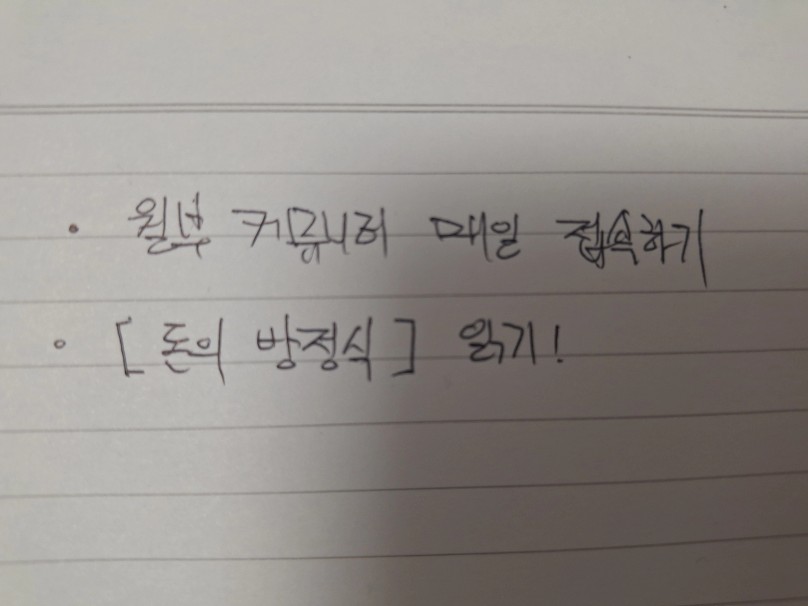 · 월부 커뮤니티 매일 접속하기
◦ [돈의 방정식] 읽기!